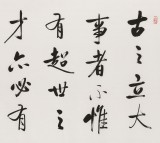 古之立大
事者不惟
有超世之
才亦必有